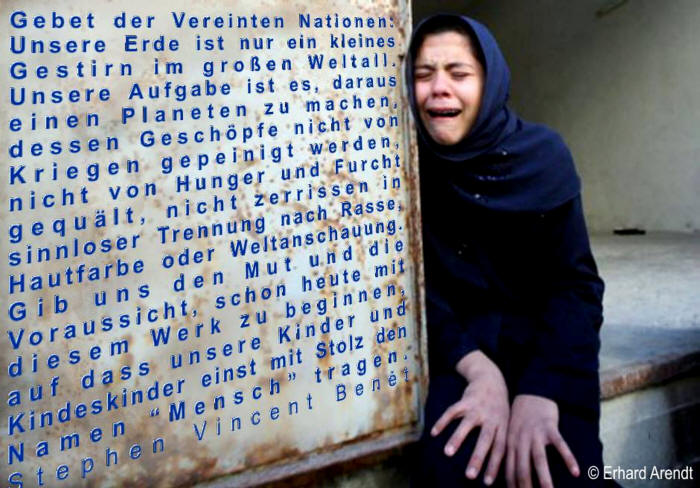 Gebet der Vereinten Nationen:
Unsere Erde ist nur ein kleines
Gestirn im großen Weltall.
Unsere Aufgabe ist es, daraus
einen Planeten zu machen,
dessen Geschöpfe nicht von
Kriegen gepeinigt werden,
nicht von Hunger und Furcht
gequält, nicht zerrissen in
sinnloser Trennung nach Rasse,
Hautfarbe oder Weltanschauung.
Gib uns den Mut und die
Voraussicht, schon heute mit
diesem Werk zu beginnen,
auf dass unsere Kinder und
Kindeskinder einst mit Stolz den
Namen "Mensch" tragen.
Stephen Vincent Benét
© Erhard Arendt